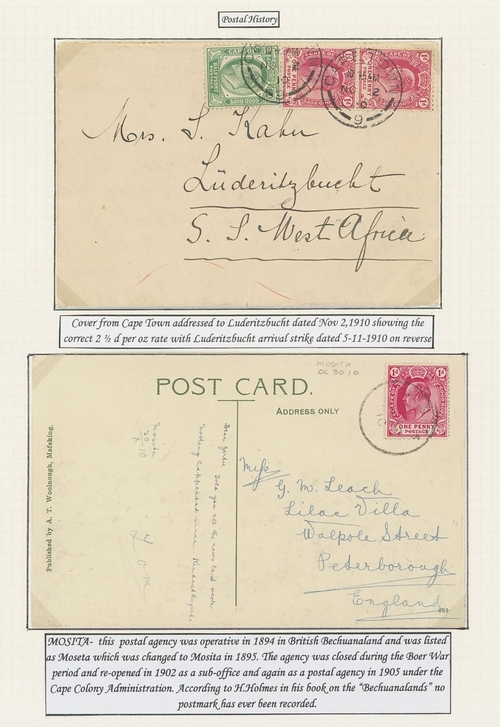 Postal History
Mrs. S. Kahn
Lüderitzbucht
S. S. West Africa
Cover from Cape Town addressed to Luderitzbucht dated Nov 2,1910 showing the
correct 2 ½ d per oz rate with Luderitzbucht arrival strike dated 5-11-1910 on reverse
MOSITA
OC 30 10
POST CARD.
ADDRESS ONLY
ONE PENNY
POSTAGE
Published by A. T. Woolnough, Mafeking.
Mosita
30
10
Tom
Miss
G. M. Leach
Lilac Villa
Walpole Street
Peterborough
England
MOSITA- this postal agency was operative in 1894 in British Bechuanaland and was listed
as Moseta which was changed to Mosita in 1895. The agency was closed during the Boer War
period and re-opened in 1902 as a sub-office and again as a postal agency in 1905 under the
Cape Colony Administration. According to H.Holmes in his book on the "Bechuanalands" no
postmark has ever been recorded.